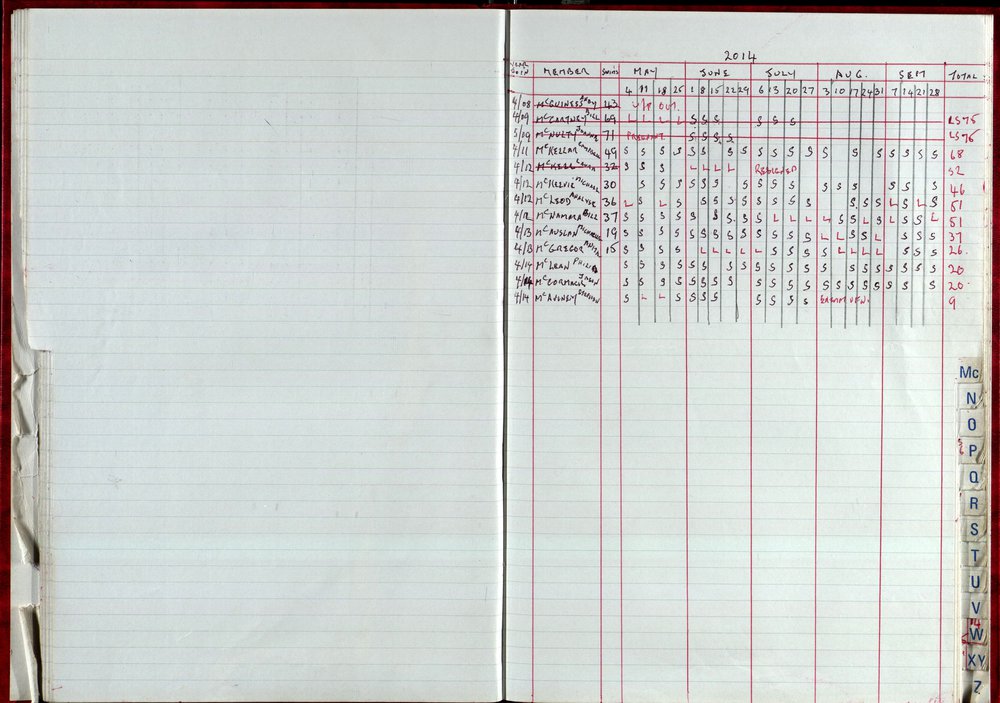 2014
YEAR JOIN MEMBER SWIMS MAY JUNE JULY AUG. SEPT TOTAL
4 11 18 25 1 8 15 22 29 6 13 20 27 3 10 17 24 31 7 14 21 28
4/08 McGUINESS ANDY 43 V/P OUT
4/09 McCARTNEY BILL 69 L L L L S S S S S S LS75
5/09 McNULTY JOANNE 71 PREGNANT S S S S LS75
4/11 McKELLAR 49 S S S S S S S S S S S S S S S S S S S 68
4/12 McKELL 32 S S S L L L L RESIGNED 52
4/12 McKELVIE MICHAEL 30 S S S S S S S S S S S S S S S S 46
4/12 McLEOD 36 L S L S S S S S S S S S S S S S L S L S 51
4/12 McNAMARA BILL 37 S S S S S S S S S S L L L L S S L S L S S L 51
4/13 McAUSLAN 19 S S S S S S S S S S S S S L L S S L S S S 37
4/13 McGREGOR 15 S S S S L L L L L S S S S L L L L S S S 26
4/14 McLEAN PHILIP S S S S S S S S S S S S S S S S S S S S 20
4/14 McCORMACK JASON S S S S S S S S S S S S S S S S S S S S 20
4/14 McAVENEY STEPHEN S L L S S S S S S S S 9
Mc
N
O
P
Q
R
S
T
U
V
W
XY
Z